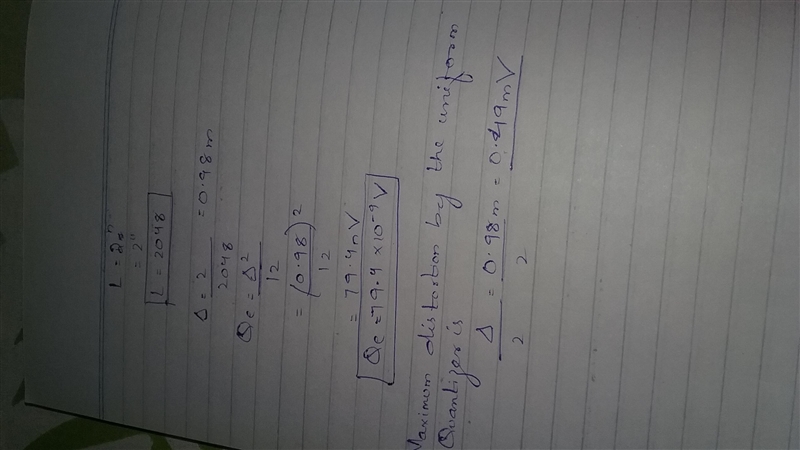 L = 2^n
= 2^11
L = 2048
Δ = 2/2048 = 0.98m
Qe = Δ^2/12
= (0.98)^2/12
= 79.4nV
Qe = 79.4 × 10^-9 V
Maximum distortion by the uniform
Quantizer is
Δ/2 = 0.98m/2 = 0.49mV